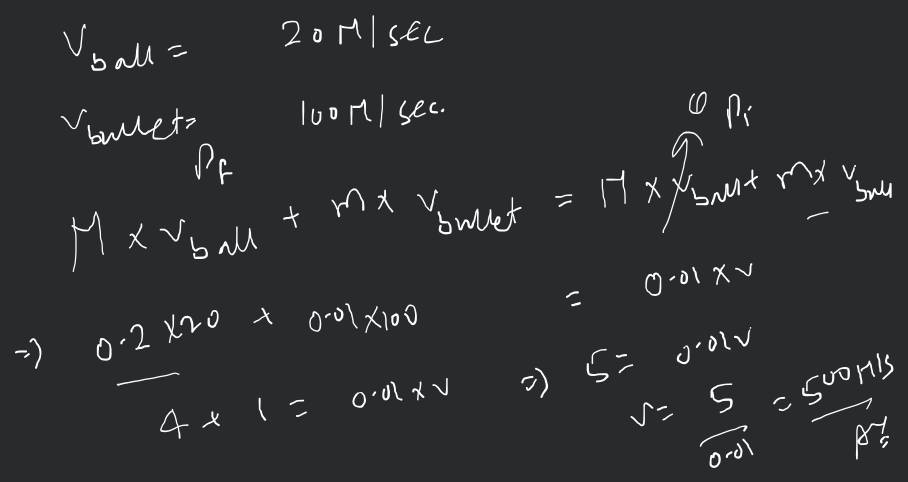 V ball = 20 M/sec
V bullet = 100 M/sec.
0 Pi
Pf
M x V ball + m x V bullet = M x V ball + m x V
=) 0.2 x 20 + 0.01 x 100 = 0.01 x v
4 + 1 = 0.01 x v =) 5 = 0.01 v
v = 5 / 0.01 = 500 M/s